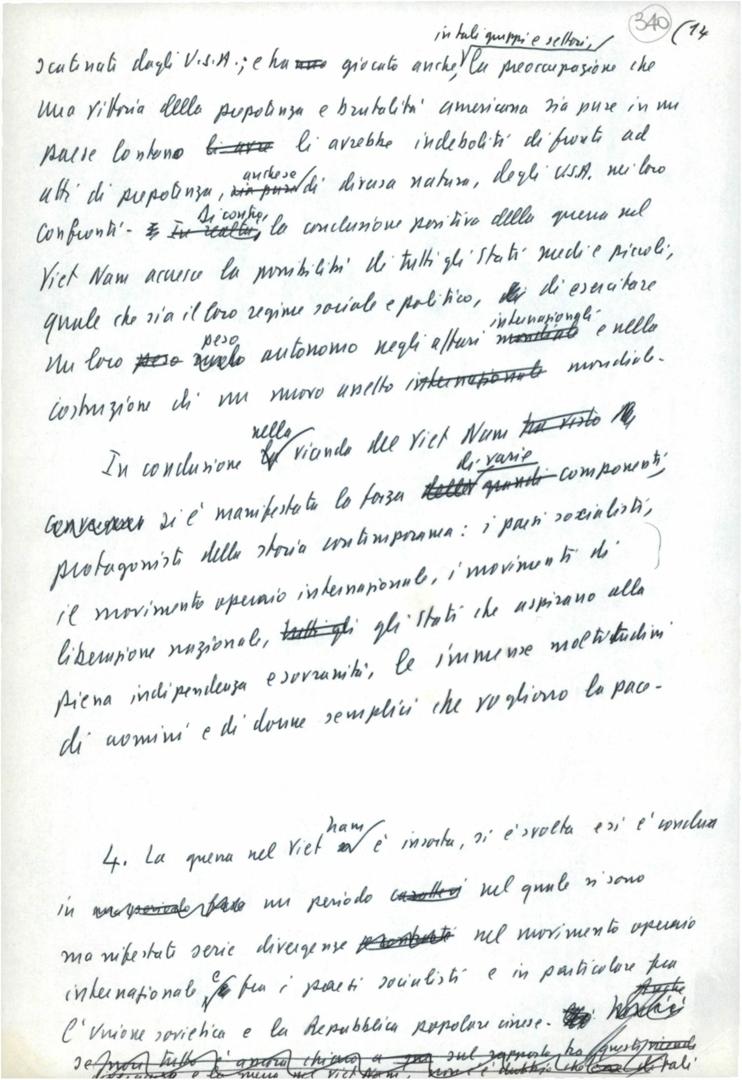 340 (14
in tali gruppi e settori,
scatenati dagli U.S.A.; e ha giocato anche la preoccupazione che
una vittoria della prepotenza e brutalità americana sia pure in un
paese lontano li avre li avrebbe indeboliti di fronte ad
anche se
atti di prepotenza, sia pure di diversa natura, degli U.S.A. nei loro
Di contro,
confronti - In realtà, la conclusione positiva della guerra nel
Viet Nam accresce la possibilità di tutti gli Stati medi e piccoli,
quale che sia il loro regime sociale e politico, di esercitare
peso internazionali
un loro peso ruolo autonomo negli affari mondiali e nella
costruzione di un nuovo assetto internazionale mondiale.
nella
In conclusione la vicenda del Viet Nam ha visto
di varie
si è manifestata la forza delle grandi componenti,
protagonisti della storia contemporanea: i paesi socialisti,
il movimento operaio internazionale, i movimenti di
liberazione nazionale, tutti gli gli Stati che aspirano alla
piena indipendenza e sovranità, le immense moltitudini
di uomini e di donne semplici che vogliono la pace -
nam
4. La guerra nel Viet è insorta, si è svolta e si è conclusa
in un periodo nel quale si sono
manifestati serie divergenze nel movimento operaio
internazionale e fra i paesi socialisti e in particolare fra
l'Unione sovietica e la Repubblica popolare cinese.
se non tutto è ancora chiaro a sul rapporto tra questa vicenda
e la guerra nel Viet Nam, non c'è dubbio che di tali